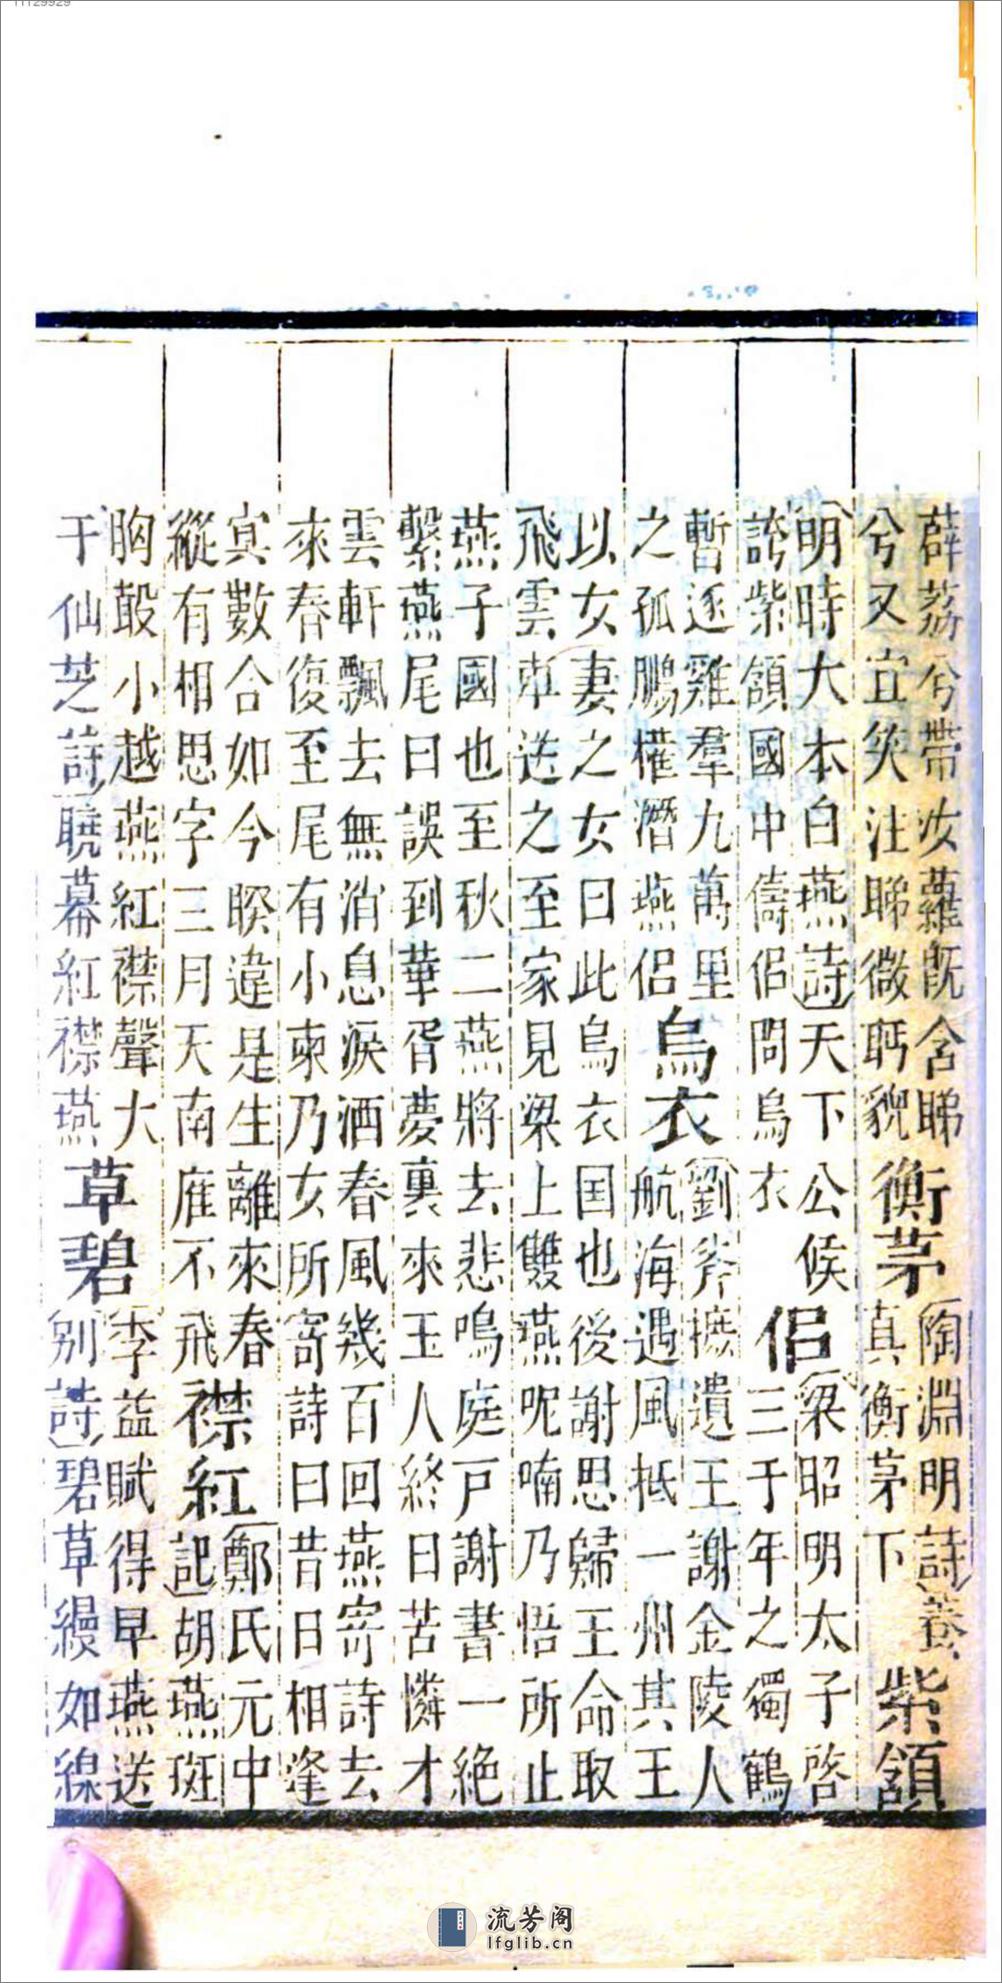 薜荔兮帶汝蘿既含睇
兮又宜笑注睇微眄貌
衡茅
陶淵明詩養
真衡茅下
紫頷
明時大本白燕詩天下公侯
誇紫頷國中儔侶問烏衣
侶
梁昭明太子啓
三千年之獨鶴
暫逐雞羣九萬里
之孤鵬權潛燕侶
烏衣
劉斧摭遺王謝金陵人
航海遇風抵一州其王
以女妻之女曰此烏衣国也後謝思歸王命取
飛雲車送之至家見梁上雙燕呢喃乃悟所止
燕子國也至秋二燕將去悲鳴庭戸謝書一絕
繫燕尾曰誤到華胥夢裏來玉人終日苦憐才
雲軒飄去無消息淚洒春風幾百回燕寄詩去
來春復至尾有小柬乃女所寄詩曰昔日相逢
寘數合如今睽違是生離來春
縱有相思字三月天南雁不飛
襟紅
鄭氏元中
記胡燕斑
胸鷇小越燕紅襟聲大
于仙芝詩曉幕紅襟燕
草碧
李益賦得早燕送
別詩碧草縵如線
流芳阁
lfglib.cn